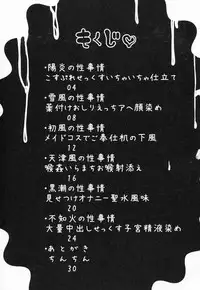 もくじ♡
・陽炎の性事情
こすぷれせっくすいちゃいちゃ仕立て
04
・雪風の性事情
薬付けおしりえっちアヘ顔染め
08
・初風の性事情
メイドコスでご奉仕機の下風
12
・天津風の性事情
喉姦いらまちお喉射添え
16
・黒潮の性事情
見せつけオナニー聖水風味
20
・不知火の性事情
大量中出しせっくす子宮精液染め
24
・あとがき
ちんちん
30